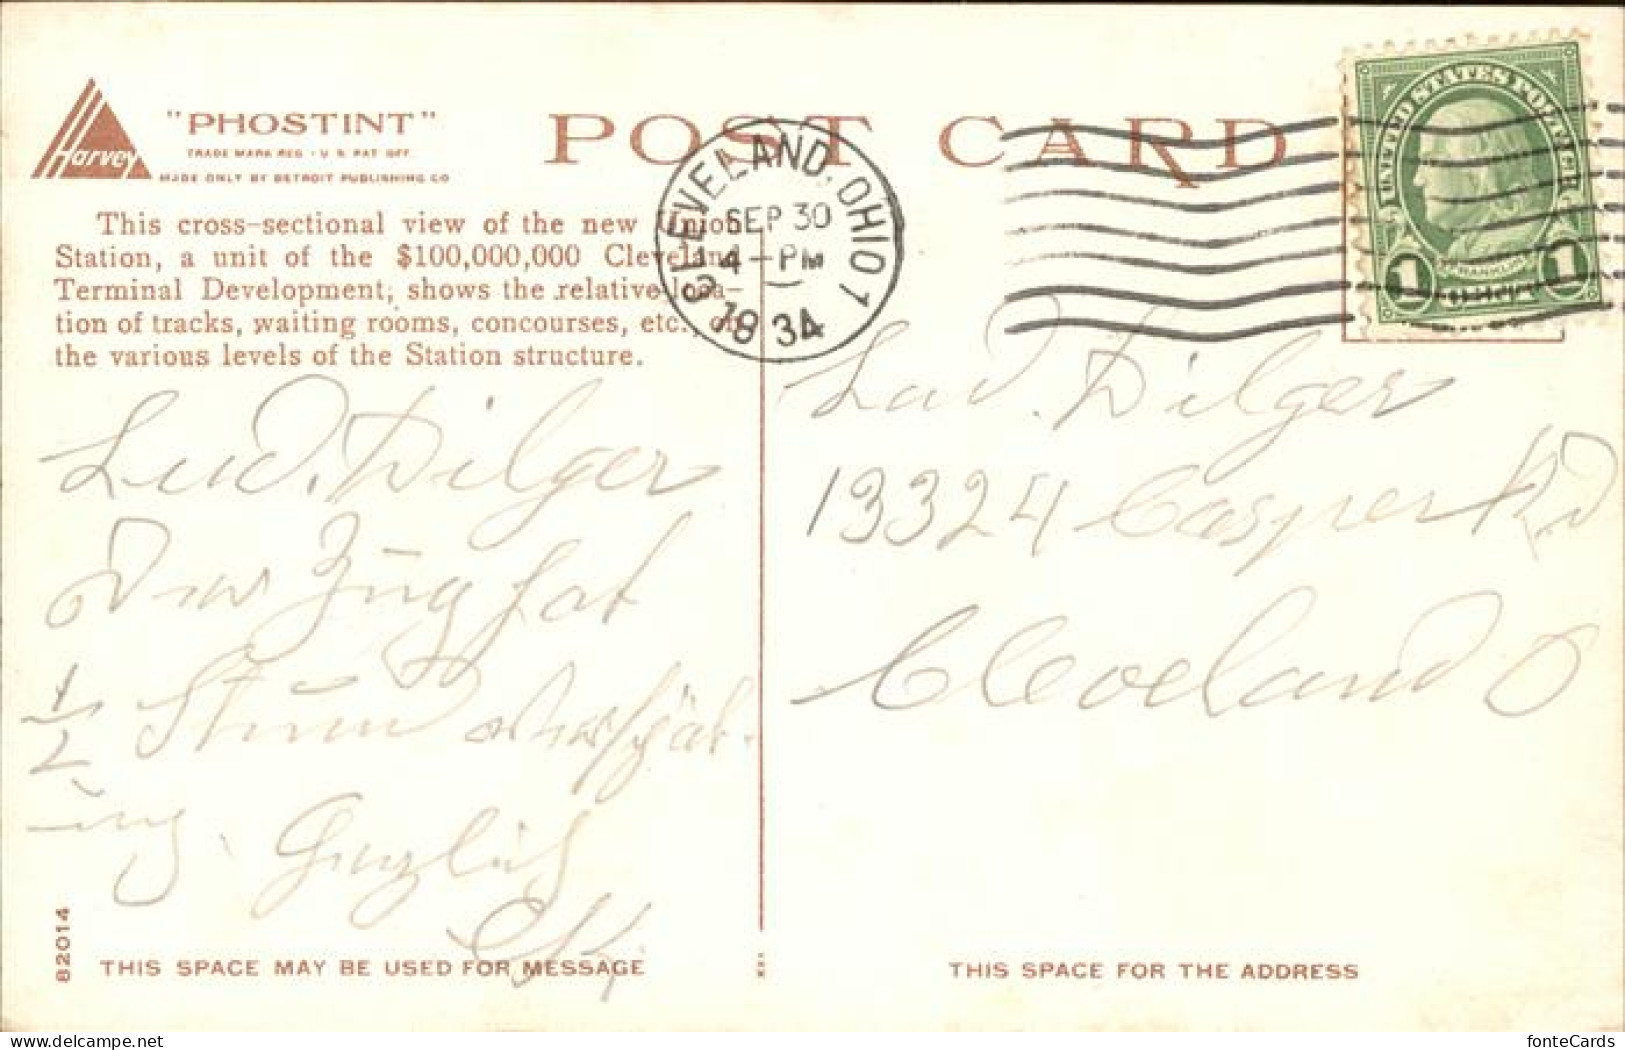 "PHOSTINT"
TRADE MARK REG · U. S. PAT OFF
MADE ONLY BY DETROIT PUBLISHING CO
Harvey
POST CARD
This cross-sectional view of the new Union
Station, a unit of the $100,000,000 Cleveland
Terminal Development, shows the relative loca-
tion of tracks, waiting rooms, concourses, etc. on
the various levels of the Station structure.
CLEVELAND, OHIO 1
SEP 30
4-PM
1934
UNITED STATES POSTAGE
FRANKLIN
1 1
Lud. Dilger
Der Zug hat
1/2 Stund Verspät-
ung.
Lud. Dilger
13324 Casper Rd
Cleveland O
82014
THIS SPACE MAY BE USED FOR MESSAGE
THIS SPACE FOR THE ADDRESS
fonteCards